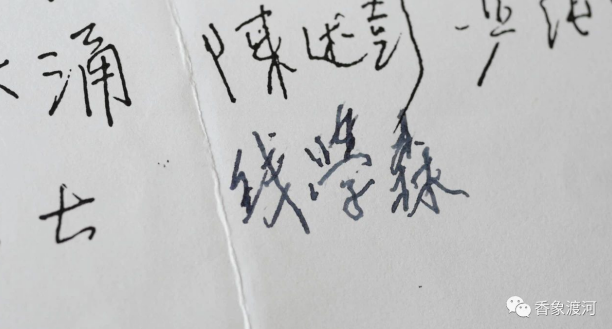 涌 陳述彭
钱学森
香象渡河